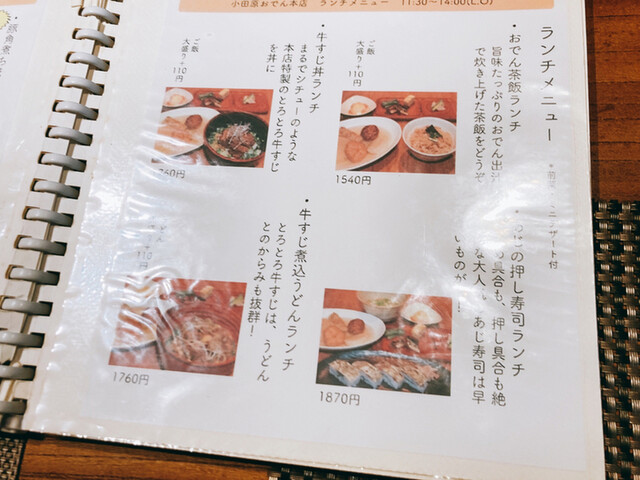 小田原おでん本店 ランチメニュー 11:30〜14:00(L.O)
ランチメニュー
・おでん茶飯ランチ
旨味たっぷりのおでん出汁
で炊き上げた茶飯をどうぞ
ご飯
大盛り+110円
1540円
・牛すじ丼ランチ
まるでシチューのような
本店特製のとろとろ牛すじ
を丼に
ご飯
大盛り+110円
60円
の押し寿司ランチ
具合も、押し具合も絶
な大人 あじ寿司は早
いものが
1870円
・牛すじ煮込うどんランチ
とろとろ牛すじは、うどん
とのからみも抜群!
+110円
1760円
・豚角煮ち